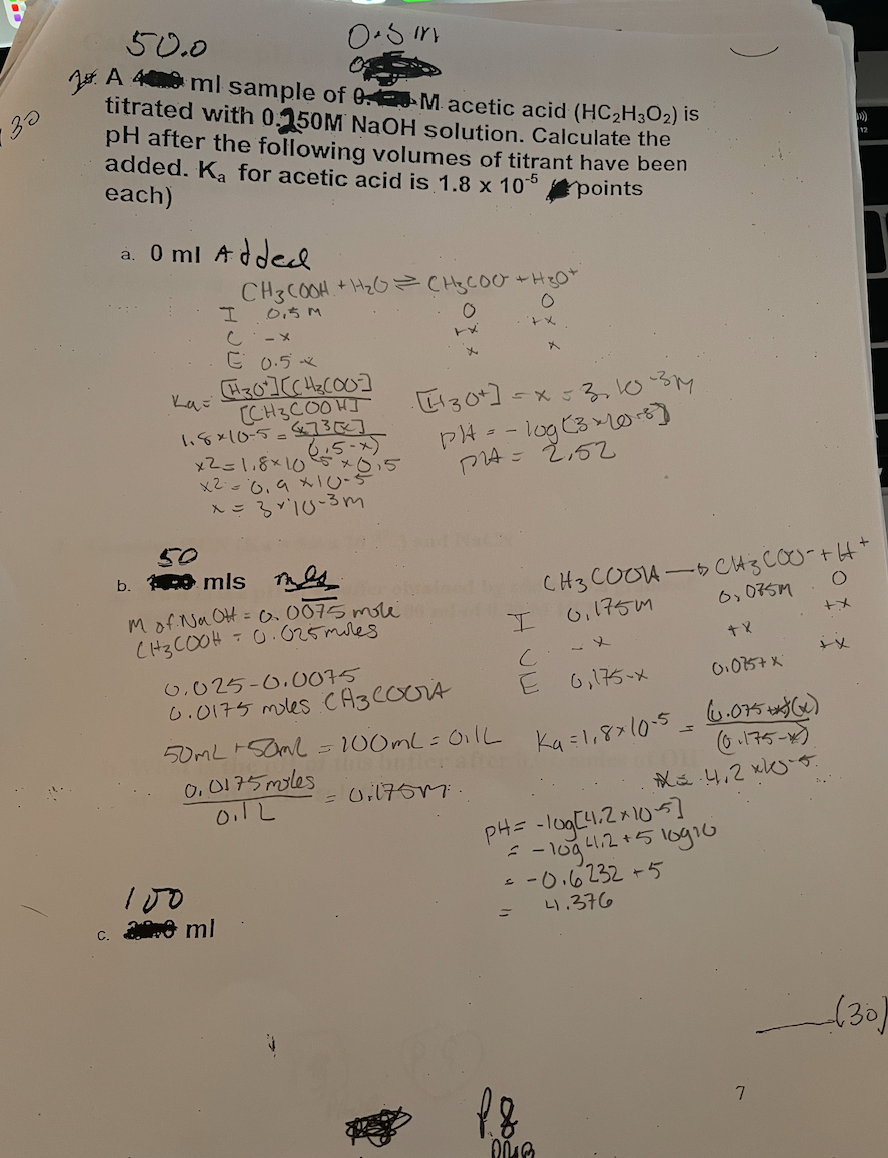 50.0
0.5 M
A ml sample of 0. M acetic acid (HC₂H₃O₂) is
30
titrated with 0.250M NaOH solution. Calculate the
pH after the following volumes of titrant have been
added. Kₐ for acetic acid is 1.8 x 10⁻⁵ points
each)
a. 0 ml Added
CH₃COOH + H₂O ⇌ CH₃COO⁻ + H₃O⁺
I 0.5 M 0 0
C -x +x +x
E 0.5-x x x
Ka = [H₃O⁺][CH₃COO⁻]
[CH₃COOH]
1.8×10-5 = [x][x]
(0.5-x)
x2 = 1.8×10⁻⁵ × 0.5
x2 = 0.9 ×10-5
x = 3×10-3 m
[H₃O⁺] = x = 3.10⁻³M
pH = -log[3×10⁻³]
pH = 2.52
50
b. mls mls
M of NaOH = 0.0075 mole
CH₃COOH = 0.025 moles
0.025-0.0075
0.0175 moles CH₃COOH
50mL + 50mL = 100mL = 0.1L
0.0175 moles
0.1 L
= 0.175M
CH₃COOH → CH₃COO⁻ + H⁺
I 0.175M 0.075M 0
C -x +x +x
E 0.175-x 0.075+x
Ka = 1.8×10⁻⁵ = (0.075+x)(x)
(0.175-x)
x = 4.2 ×10⁻⁵
pH = -log[4.2×10⁻⁵]
= -log 4.2 + 5 log10
= -0.6232 + 5
= 4.376
100
c. ml
(30)
7
P.8